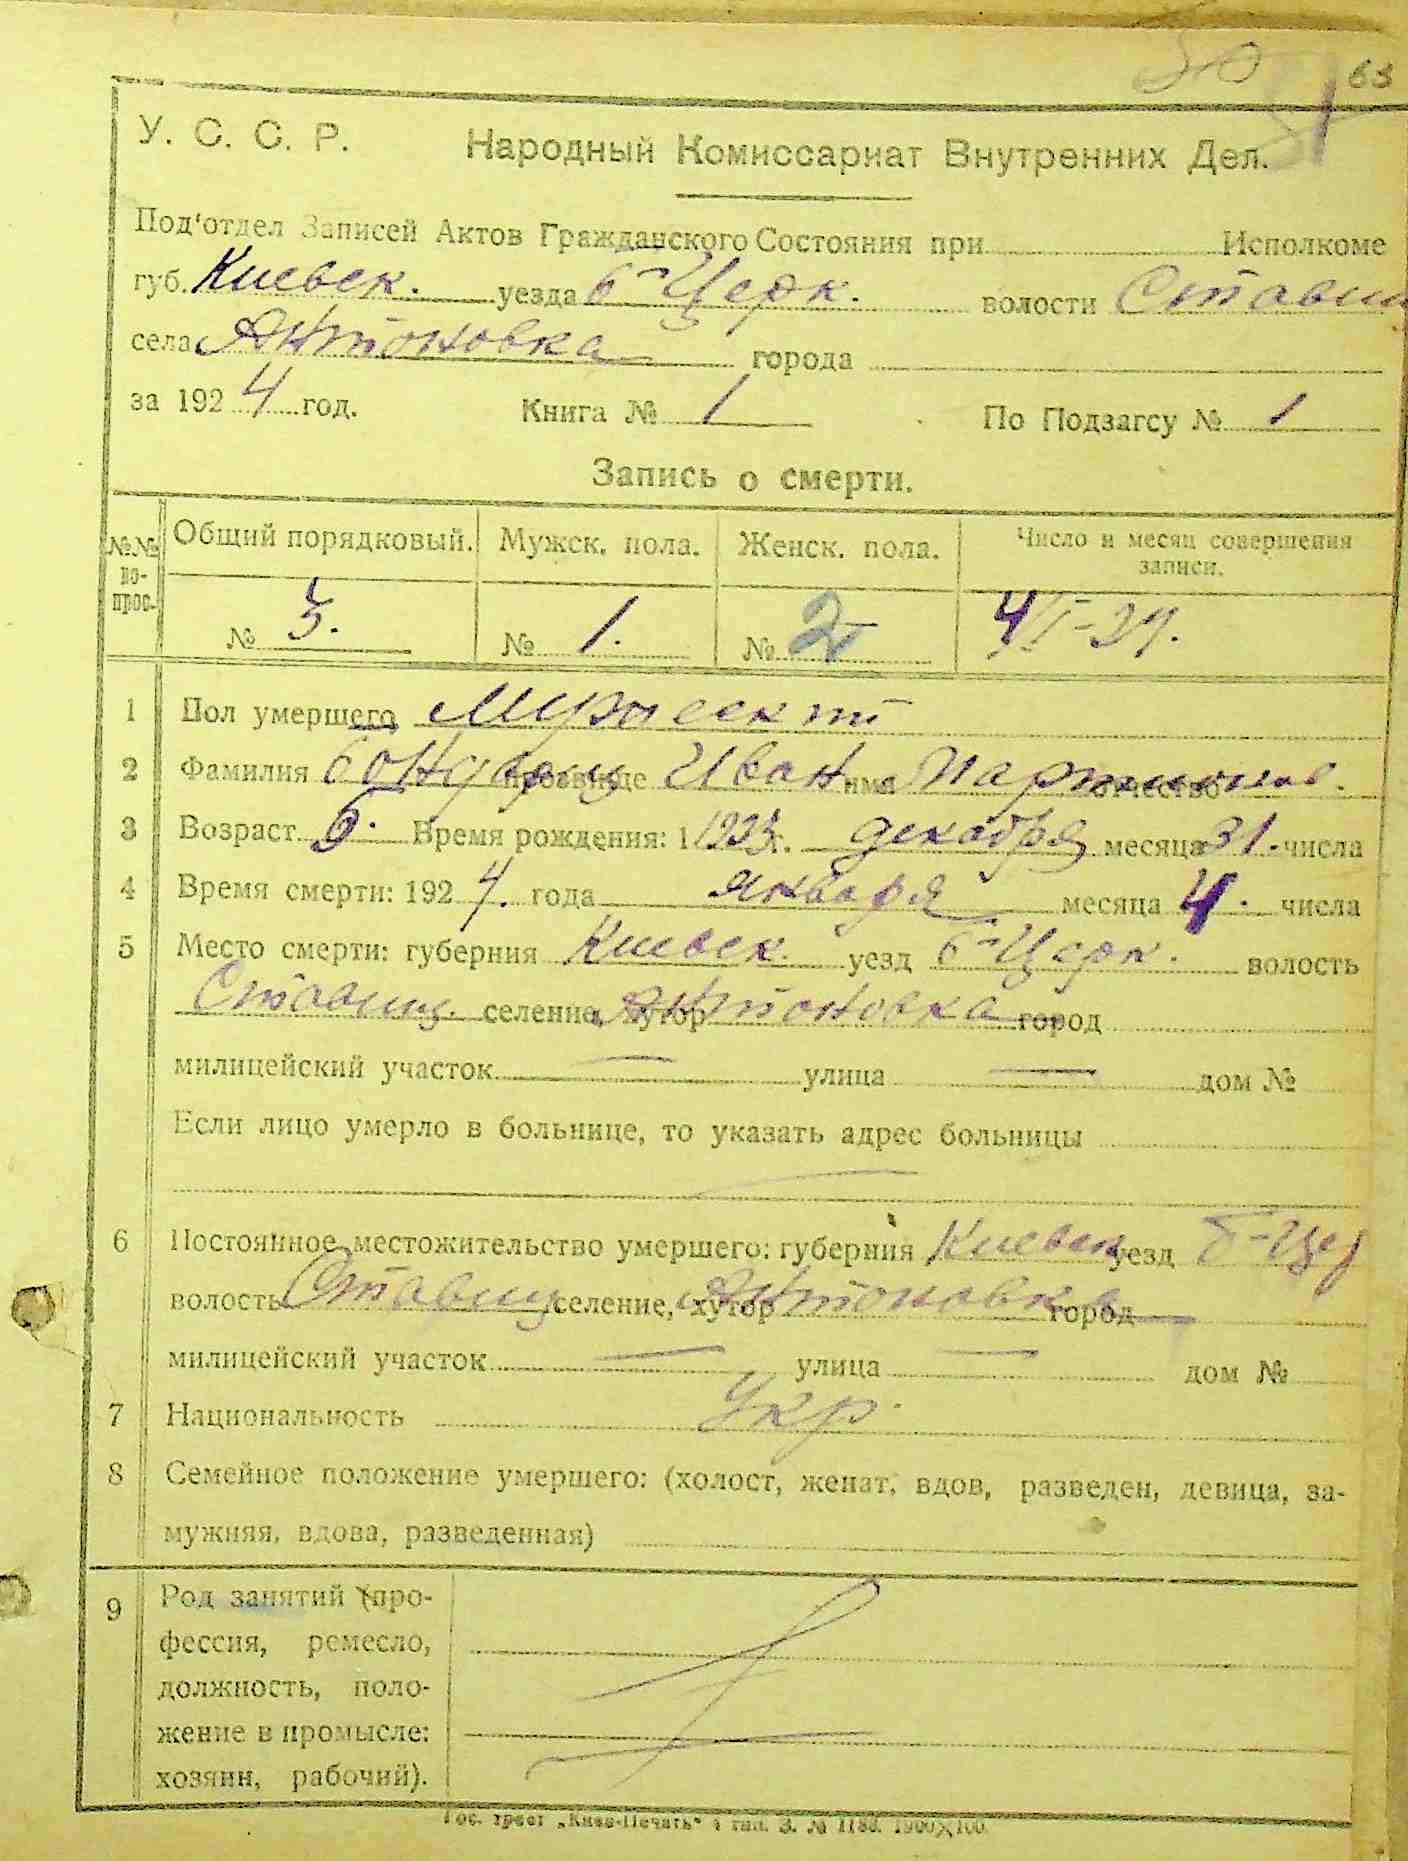 63
У. С. С. Р. Народный Комиссариат Внутренних Дел.
Под'отдел Записей Актов Гражданского Состояния при Исполкоме
губ. Киевск. уезда б-Церк. волости Ставищ
села Антоновка города
за 1924 год. Книга № 1 По Подзагсу № 1
Запись о смерти.
№№ по-прос. Общий порядковый. Мужск. пола. Женск. пола. Число и месяц совершения записи.
№ 3. № 1. № 2 4/I-24.
1 Пол умершего Мужеский
2 Фамилия Бондарец прозвище Иван имя Партионов. отчество
3 Возраст Время рождения: 1 1923 г. декабря месяца 31. числа
4 Время смерти: 1924. года января месяца 4. числа
5 Место смерти: губерния Киевск. уезд б-Церк. волость
Ставищ. селение, хутор Антоновка город
милицейский участок — улица — дом №
Если лицо умерло в больнице, то указать адрес больницы
—
6 Постоянное местожительство умершего: губерния Киевск уезд Б-Цер
волость Ставищ селение, хутор Антоновка город —
милицейский участок — улица — дом №
7 Национальность Укр.
8 Семейное положение умершего: (холост, женат, вдов, разведен, девица, за-
мужняя, вдова, разведенная)
9 Род занятий (про-
фессия, ремесло,
должность, поло-
жение в промысле:
хозяин, рабочий).
Гос. трест „Киев-Печать“ 4 тип. З. № 1188. 1900×100.